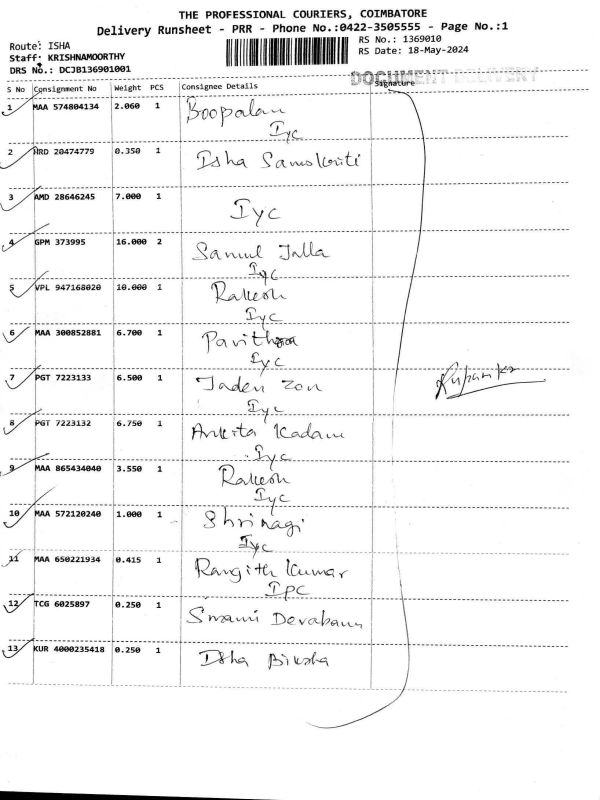 THE PROFESSIONAL COURIERS, COIMBATORE
Delivery Runsheet - PRR - Phone No.:0422-3505555 - Page No.:1
Route: ISHA
RS No.: 1369010
Staff: KRISHNAMOORTHY
RS Date: 18-May-2024
DRS No.: DCJB136901001
DOCUMENT DELIVERY
S No Consignment No Weight PCS Consignee Details Signature
1 MAA 574804134 2.060 1 Boopalan
Iyc
2 HRD 20474779 0.350 1 Isha Samskriti
3 AMD 28646245 7.000 1 Iyc
4 GPM 373995 16.000 2 Samul Jalla
Iyc
5 VPL 947168020 10.000 1 Rakesh
Iyc
6 MAA 300852881 6.700 1 Pavithra
Iyc
7 PGT 7223133 6.500 1 Jaden Zon
Iyc
8 PGT 7223132 6.750 1 Ankita Kadam
Iyc
9 MAA 865434040 3.550 1 Rakesh
Iyc
10 MAA 572120240 1.000 1 Shrinagi
Iyc
11 MAA 650221934 0.415 1 Rangith Kumar
Ipc
12 TCG 6025897 0.250 1 Swami Devabanu
13 KUR 4000235418 0.250 1 Isha Biksha